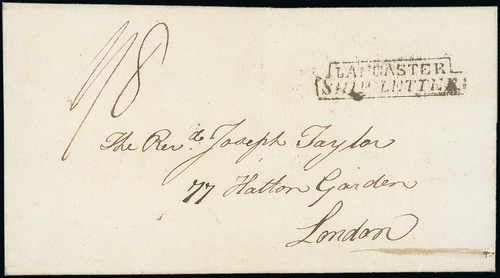 1/8
LANCASTER
SHIP LETTER
The Revd. Joseph Taylor
77 Hatton Garden
London